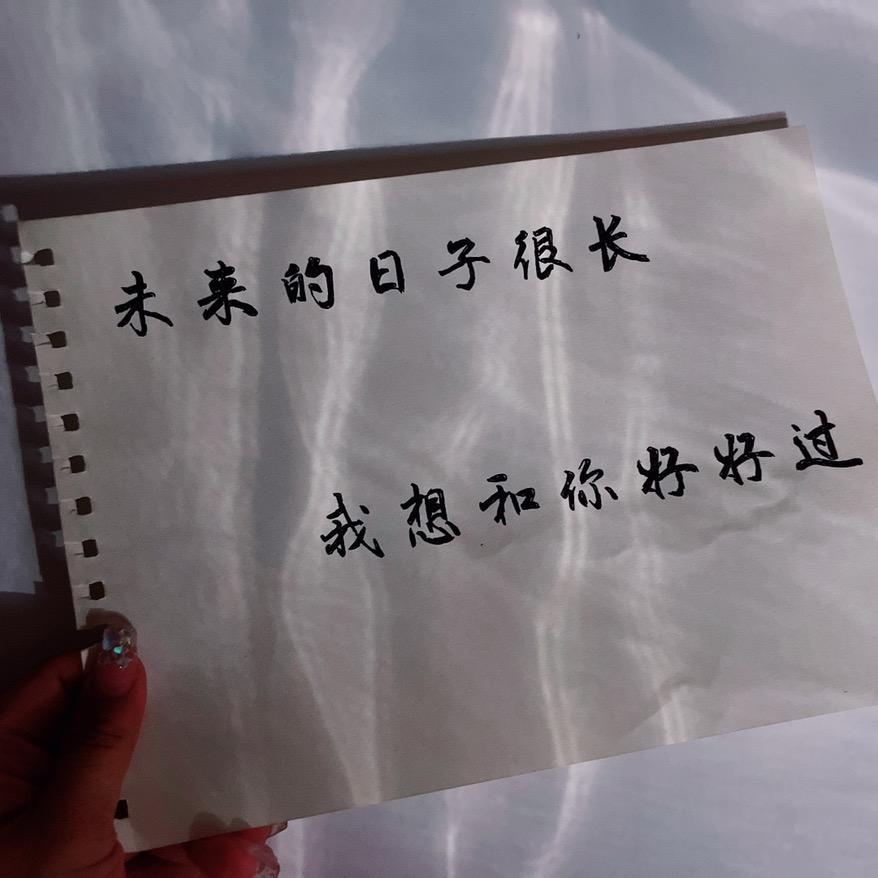 未来的日子很长
我想和你好好过